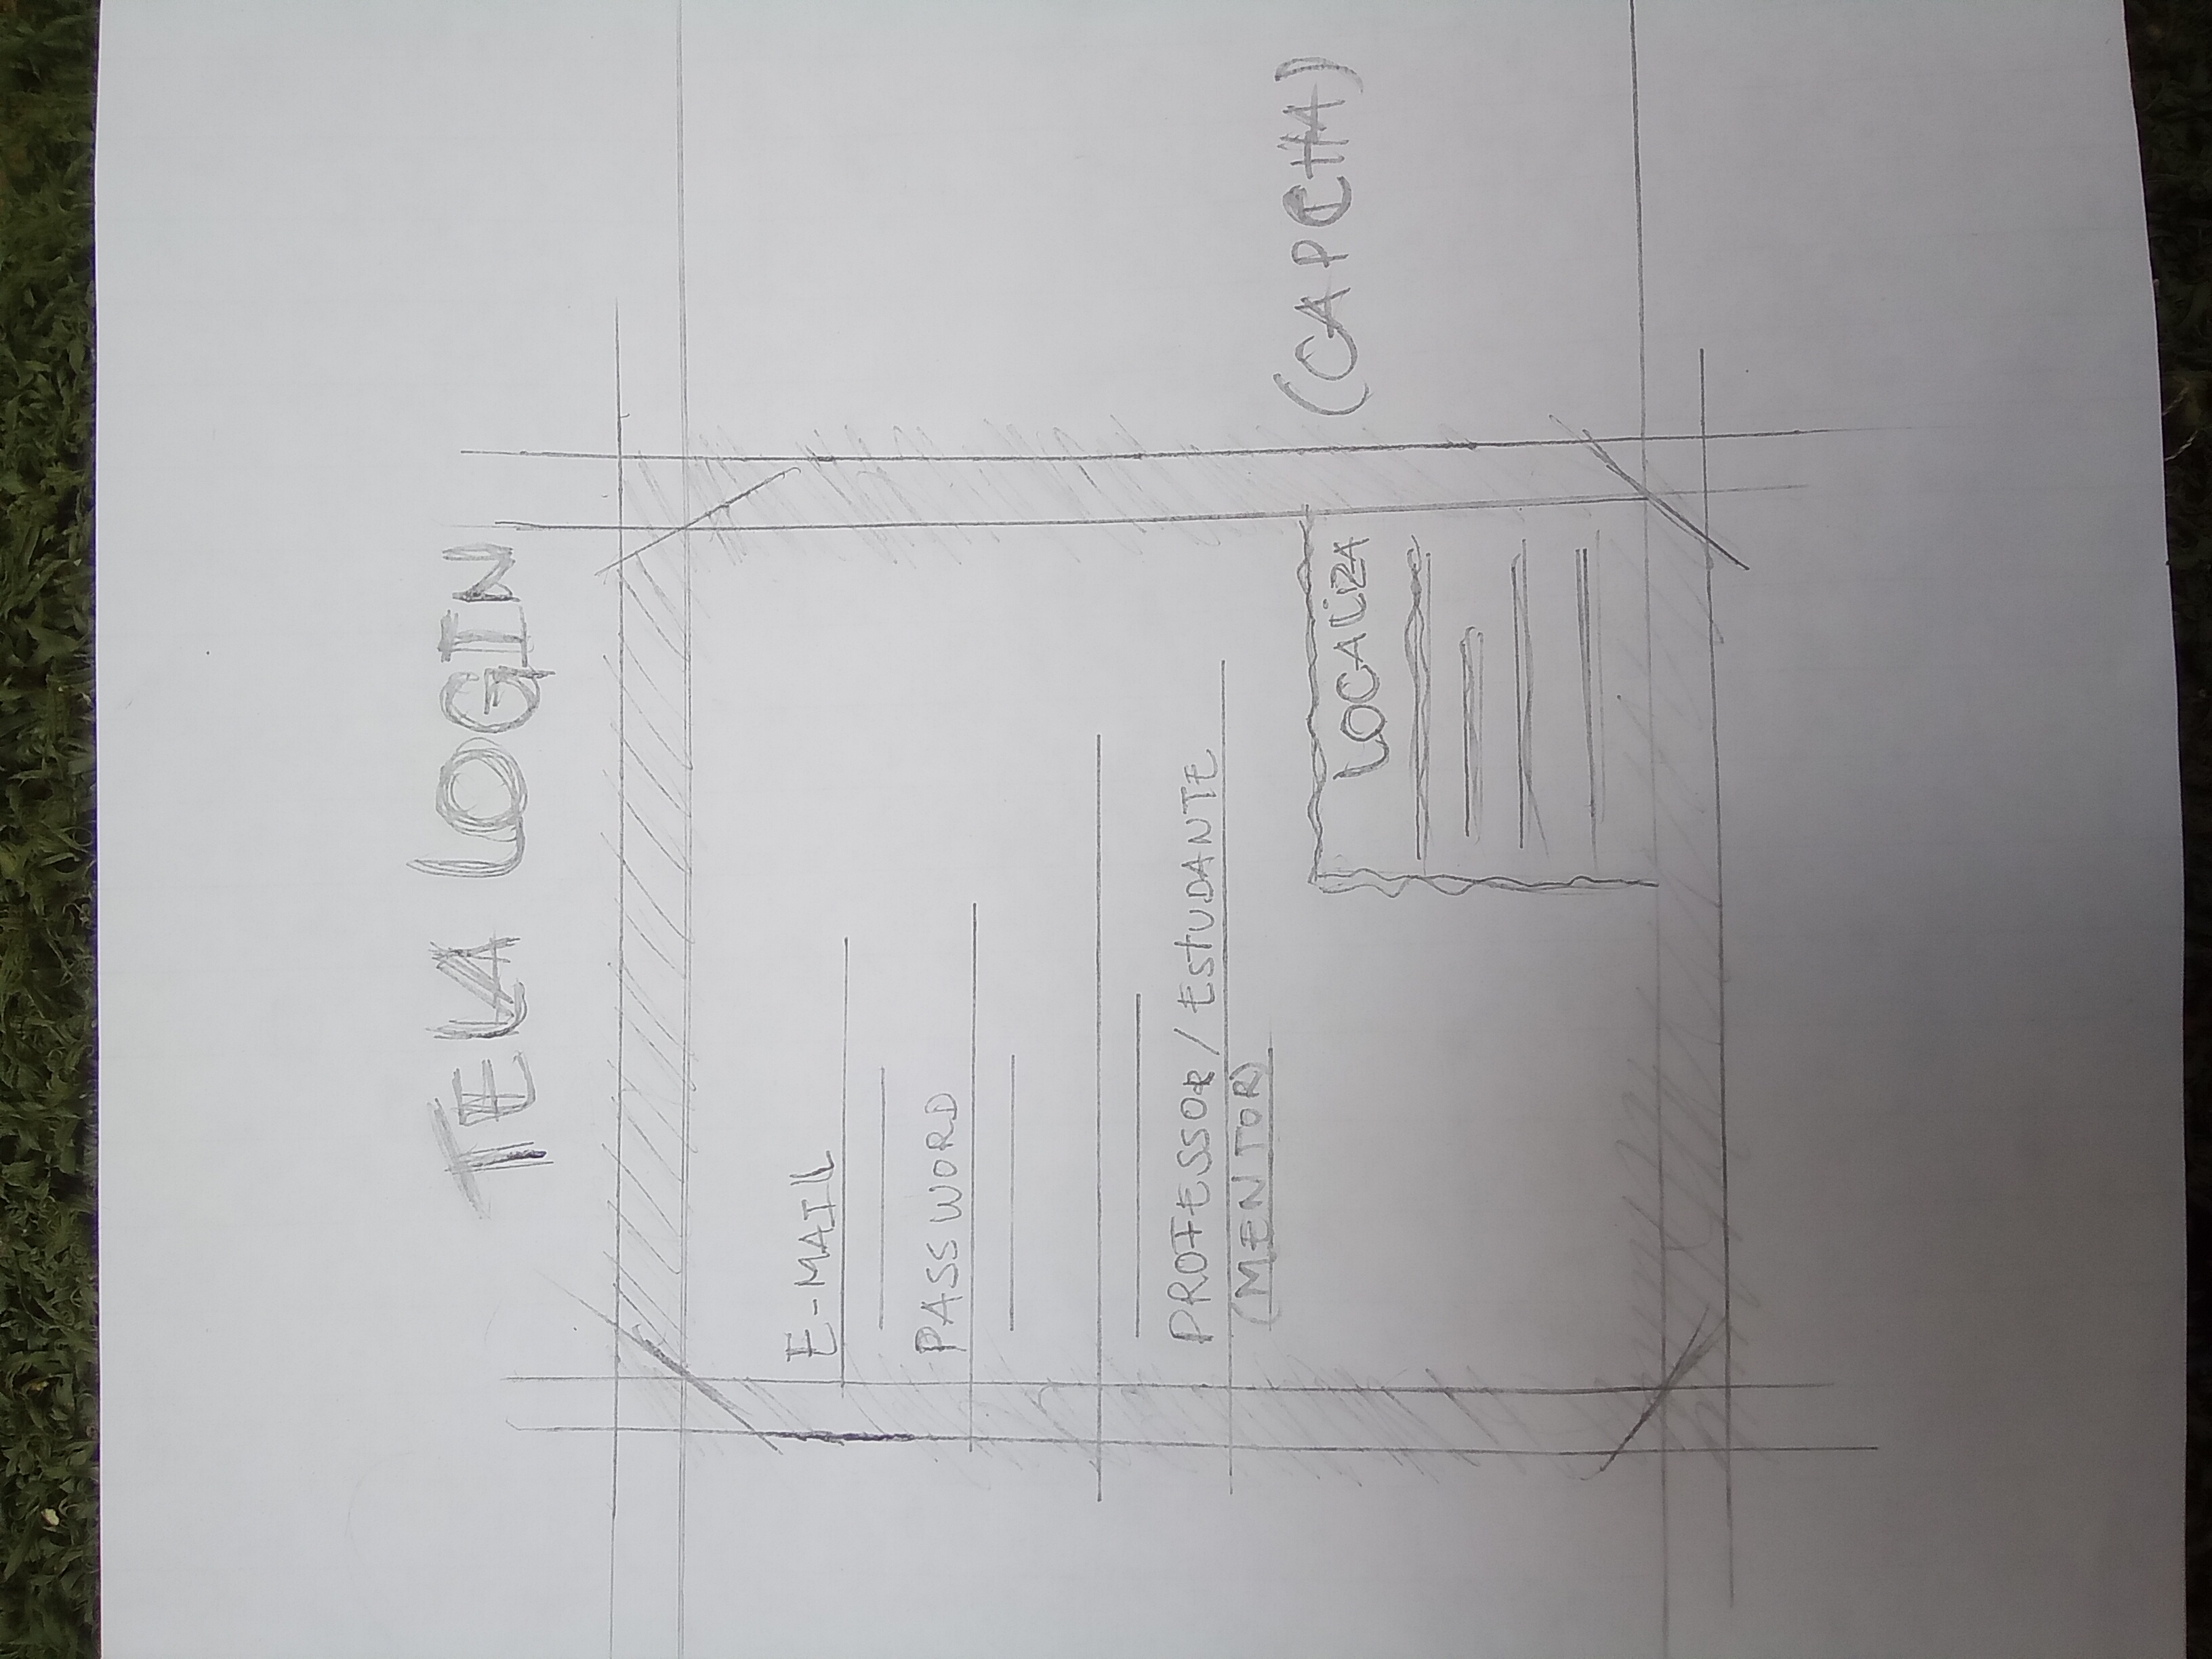 TELA LOGIN
E-MAIL
PASSWORD
PROFESSOR / ESTUDANTE
(MENTOR)
(CAPCHA)
LOCALIZA